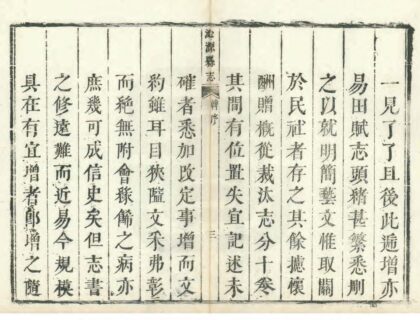 一見了了且後此遞增亦
易田賦志頭緒甚繁悉刪
之以就明簡藝文惟取關
於民社者存之其餘攄懷
酬贈概從裁汰志分十彚
其間有位置失宜記述未
沁源縣志
序
三
確者悉加改定事增而文
約雖耳目狹隘文采弗彰
而絶無附會緣飾之病亦
庶幾可成信史矣但志書
之修遠難而近易今規模
具在有宜增者卽增之隨